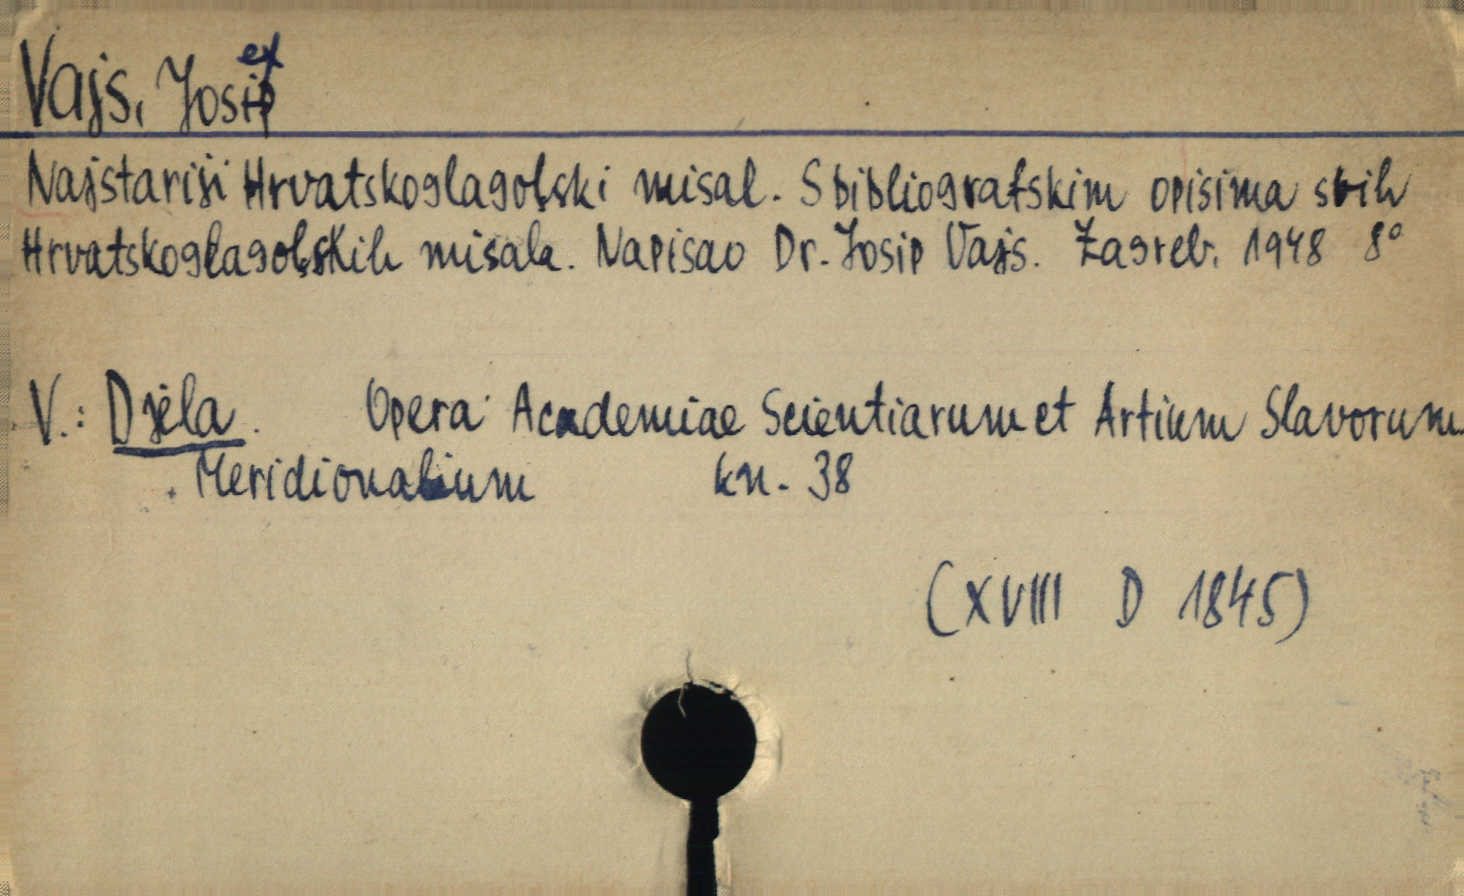 Vajs, Josip ex
Najstariji Hrvatskoglagolski misal. S bibliografskim opisima svih
Hrvatskoglagolskih misala. Napisao Dr. Josip Vajs. Zagreb. 1948 8°
V.: Djela. Opera Academiae Scientiarum et Artium Slavorum
Meridionalium kn. 38
(XVIII D 1845)